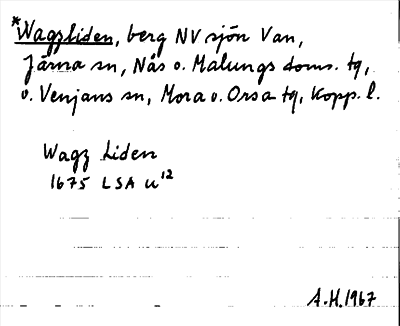 *Wagzliden, berg NV sjön Van,
Järna sn, Nås o. Malungs doms. tg,
o. Venjans sn, Mora o. Orsa tg, Kopp. l.
Wagz Liden
1675 LSA U12
A.H. 1967